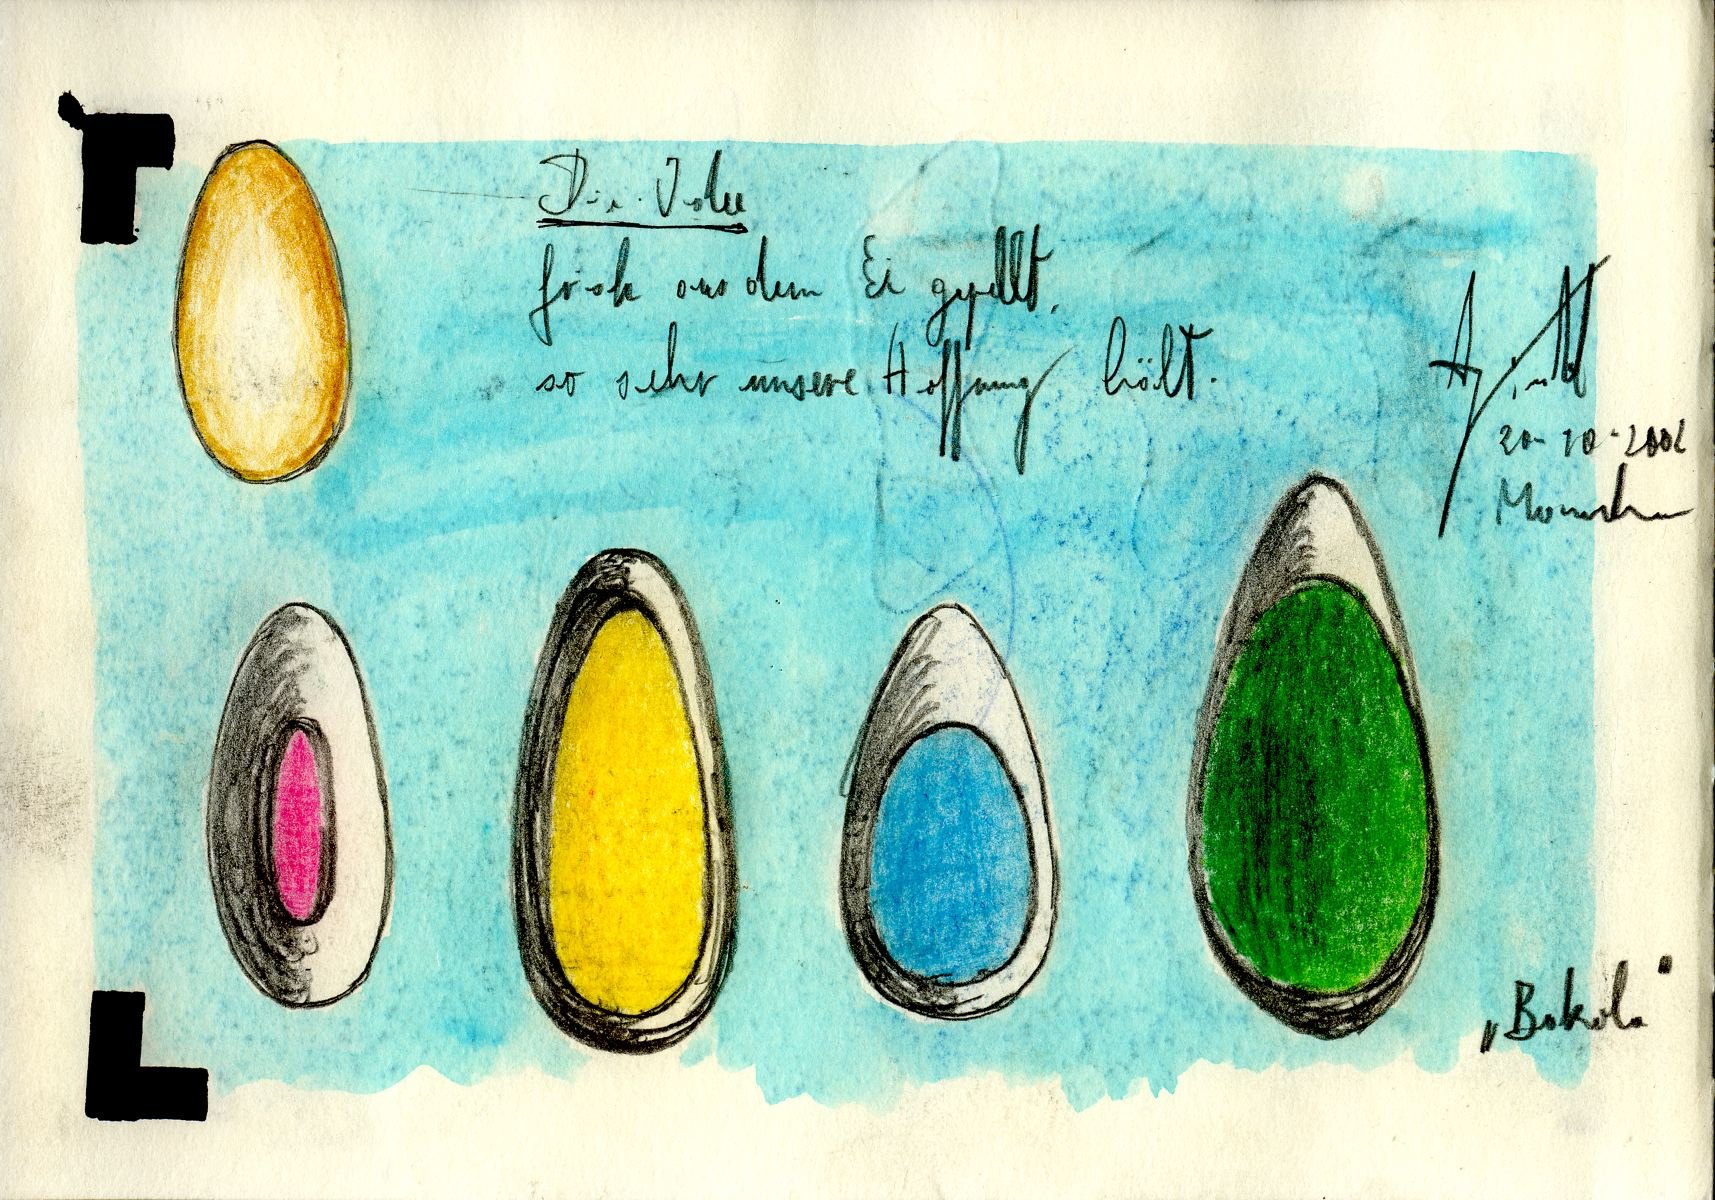 Die Idee
frisch aus dem Ei gepellt,
so sehr unsere Hoffnung hält.
20-10-2002
München
„Bakola"